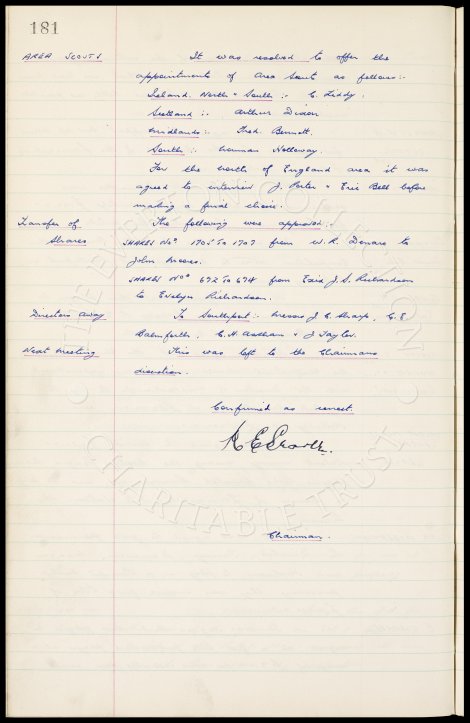 181
AREA SCOUTS
It was resolved to offer the
appointments of Area Scout as follows:-
Ireland North & South:- C. Liddy.
Scotland:- Arthur Dixon
Midlands:- Fred. Bennett.
South:- Norman Holloway.
For the north of England area it was
agreed to interview J. Porter & Eric Bell before
making a final choice.
Transfer of
Shares
The following were approved:-
SHARES Nos 1705 To 1707 from W. R. Denaro to
John
SHARES Nos 672 To 674 from J. S. Richardson
to Evelyn Richardson.
Directors away
To Southport:- Messrs J. C. Sharp, C. E
Balmforth, C. H. & J Taylor.
Next meeting
This was left to the Chairmans
discretion.
Confirmed as correct.
Chairman.
THE EVERTON COLLECTION
CHARITABLE TRUST